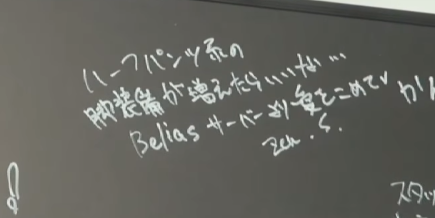 ハーフパンツ系の
脚装備が増えたらいいな…
Beliasサーバーより愛をこめて
Zen.S.
スタッ